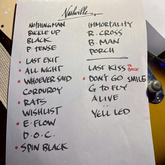 Nashville
NOTHINGMAN
PICKLE UP
BLACK
P. TENSE
• LAST EXIT
• ALL NIGHT
• WHOEVER SAID
CORDUROY
• RATS
WISHLIST
• E. FLOW
D.O.C.
• SPIN BLACK
IMMORTALITY
R. CROSS
B. MAN
PORCH
LAST KISS
• DON'T GO SMILE
G TO FLY
ALIVE
YELL LED